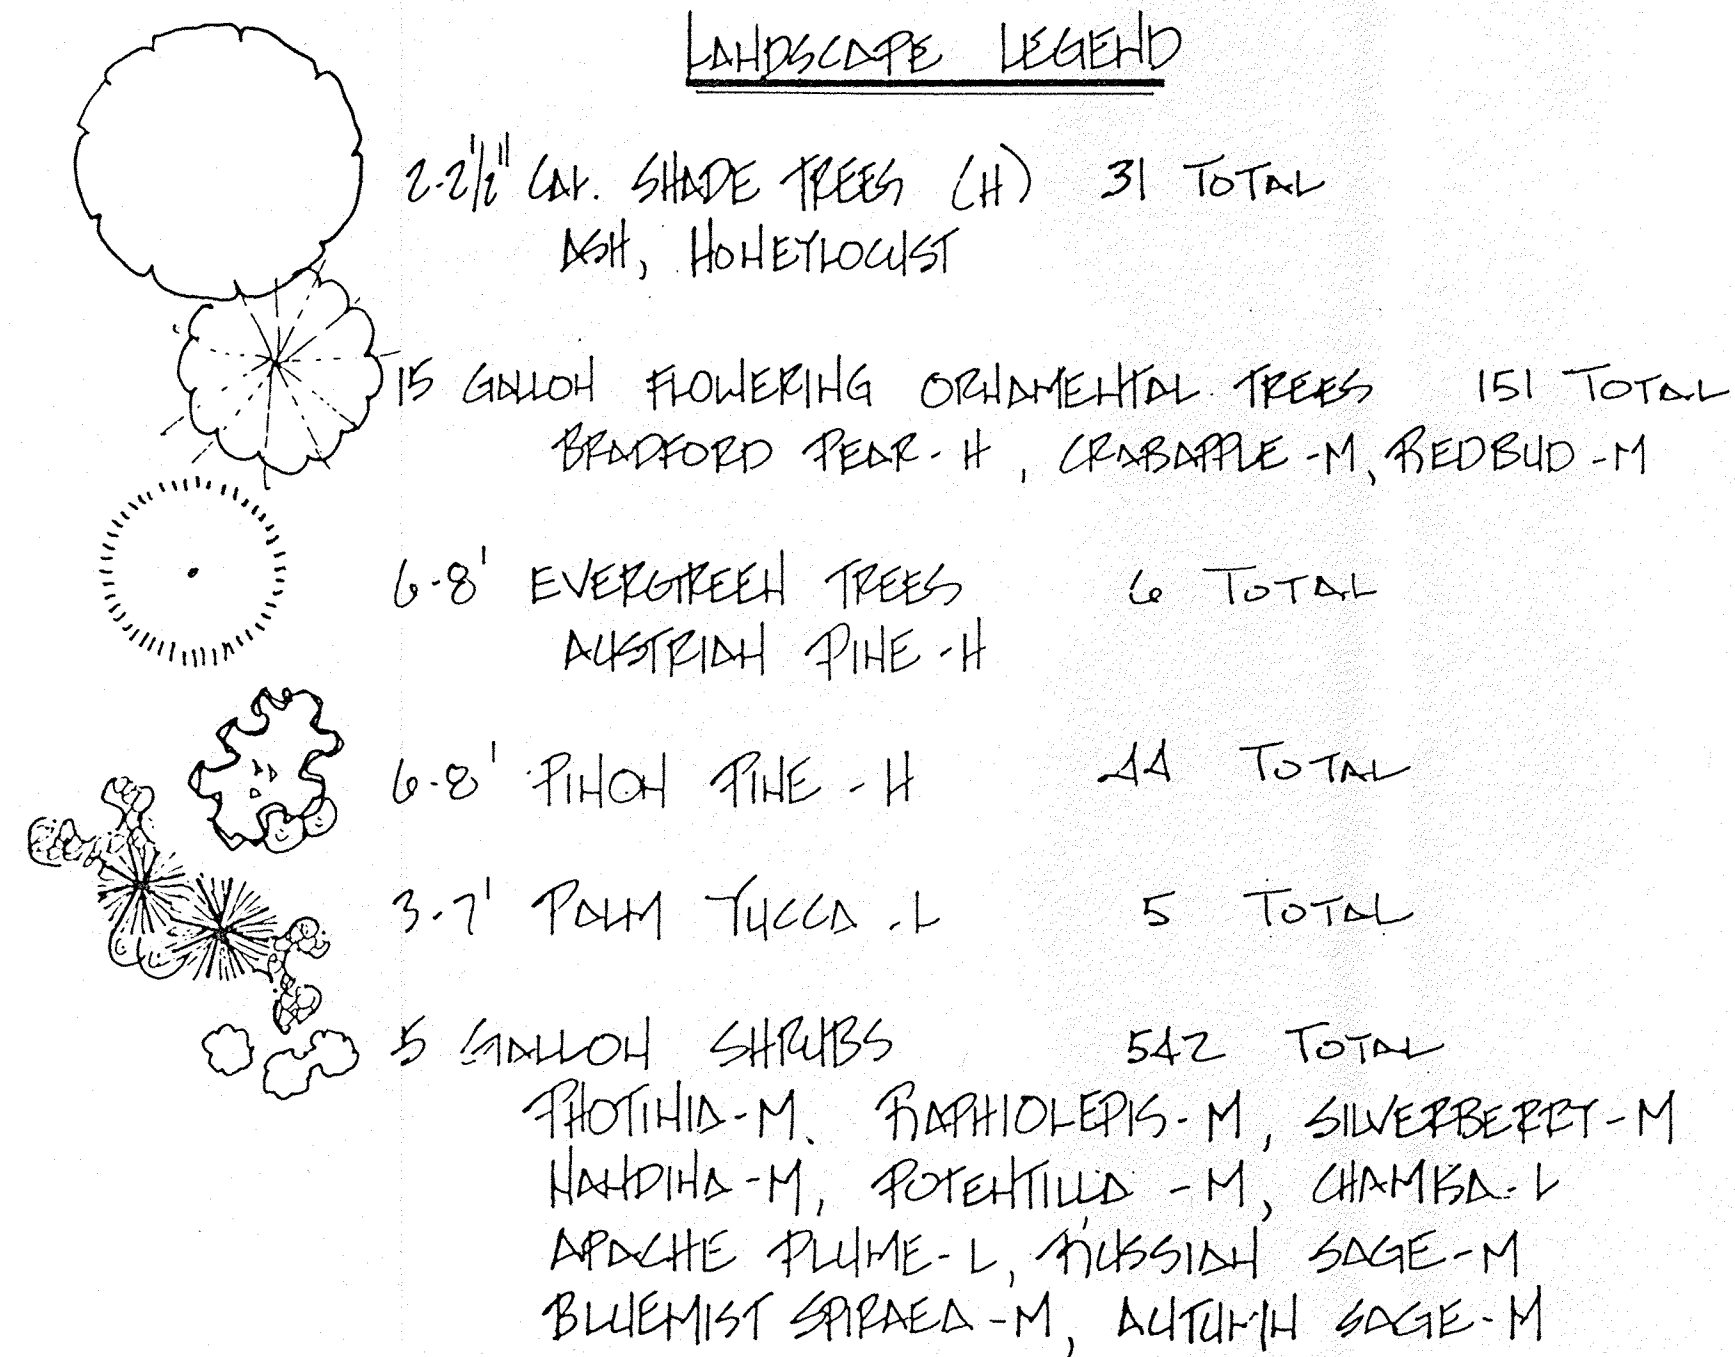 LANDSCAPE LEGEND
2-2 1/2" CAL. SHADE TREES (H) 31 TOTAL
ASH, HONEYLOCUST
15 GALLON FLOWERING ORNAMENTAL TREES 151 TOTAL
BRADFORD PEAR-H, CRABAPPLE-M, REDBUD-M
6-8' EVERGREEN TREES 6 TOTAL
AUSTRIAN PINE-H
6-8' PINON PINE-H 44 TOTAL
3-7' PALM YUCCA-L 5 TOTAL
5 GALLON SHRUBS 542 TOTAL
PHOTINIA-M, RAPHIOLEPIS-M, SILVERBERRY-M
NANDINA-M, POTENTILLA-M, CHAMISA-L
APACHE PLUME-L, RUSSIAN SAGE-M
BLUEMIST SPIRAEA-M, AUTUMN SAGE-M